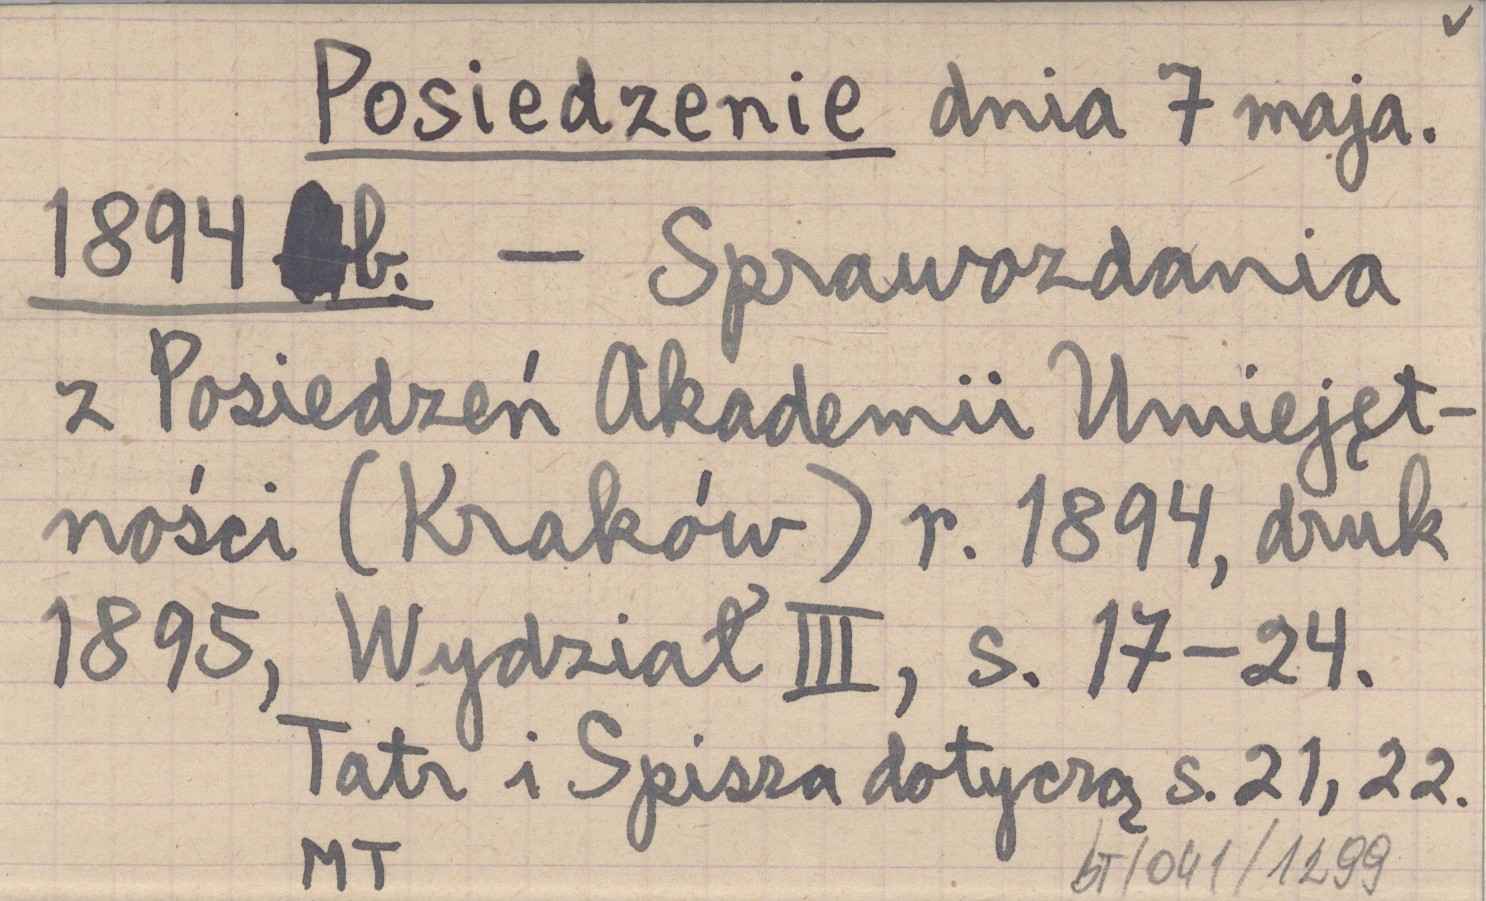 Posiedzenie dnia 7 maja.
1894 b. – Sprawozdania
z Posiedzeń Akademii Umiejęt-
ności (Kraków) r. 1894, druk
1895, Wydział III, s. 17–24.
Tatr i Spisza dotyczą s. 21, 22.
MT
bT/041/1299